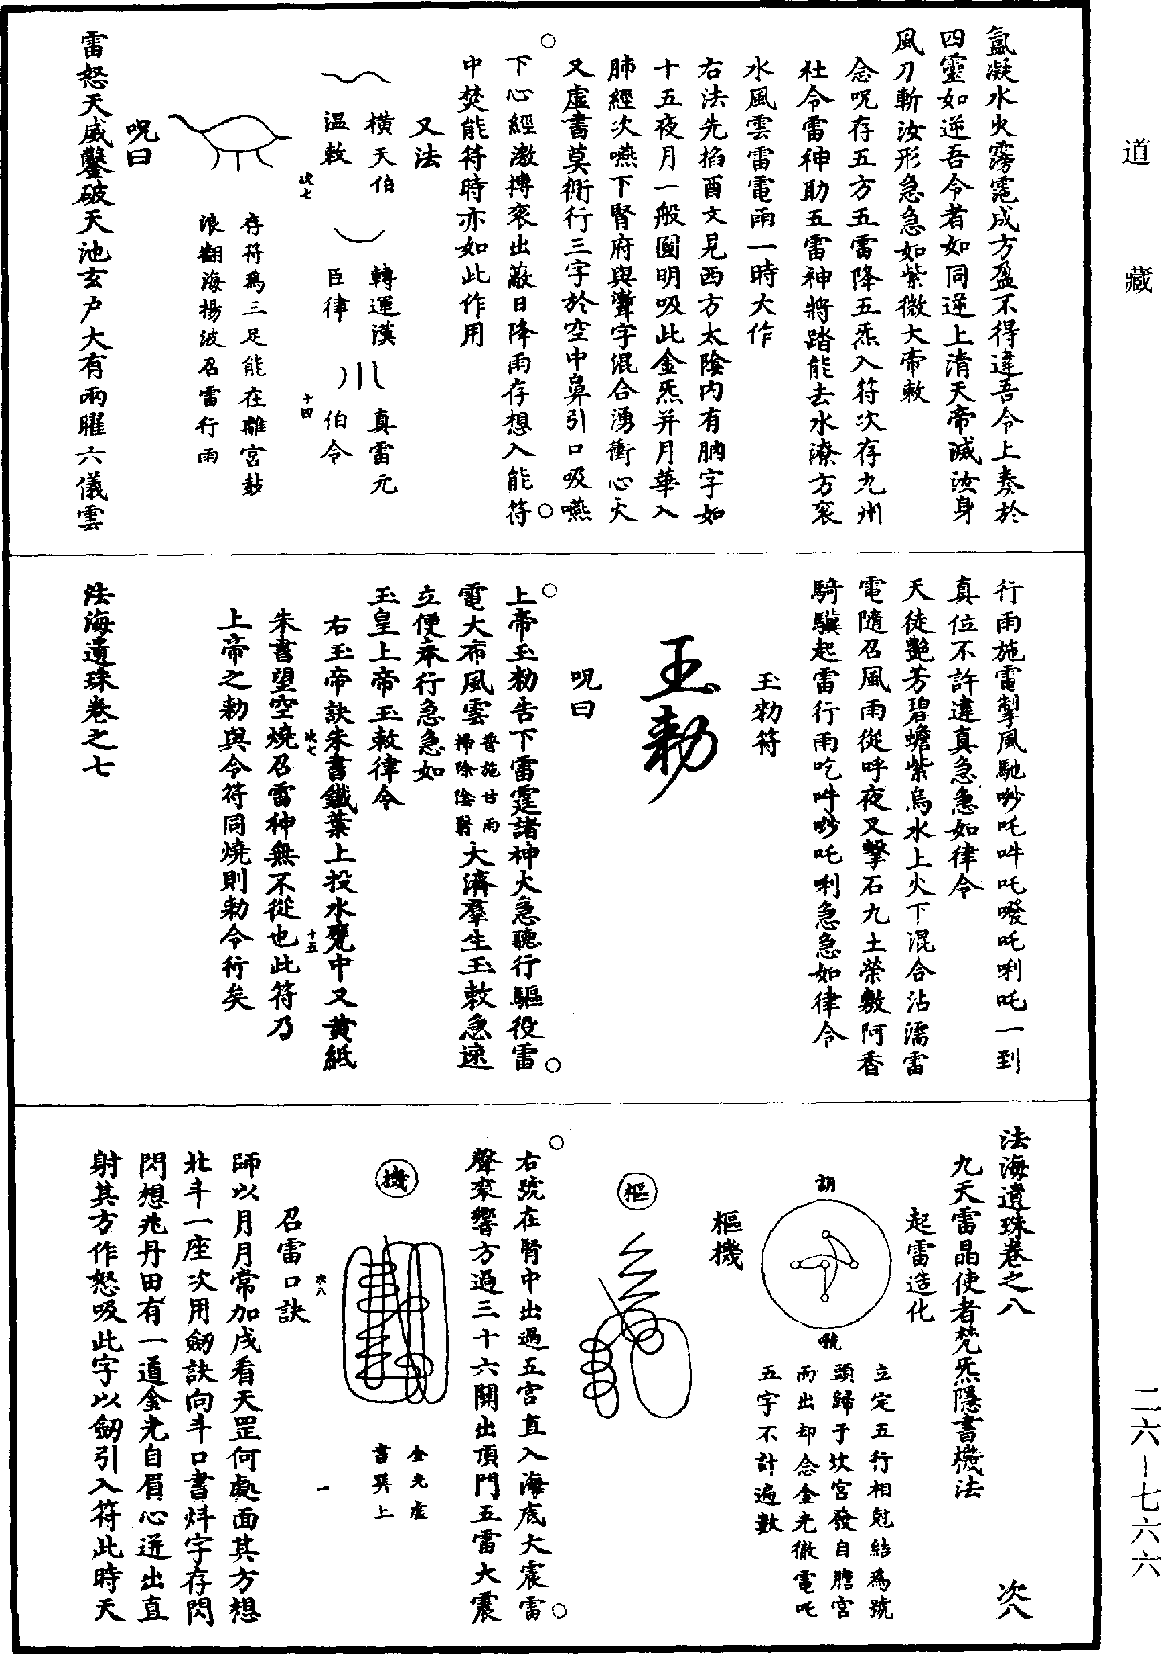 道藏
氤凝水火霧霓成方盈不得違吾令上奏於
四靈如逆吾令者如同逆上清天帝滅汝身
風刀斬汝形急急如紫微大帝敕
念呪存五方五雷降五炁入符次存九州
社令雷神助五雷神將踏能去水潦方衮
水風雲雷電雨一時大作
右法先掐酉文見西方太陰內有肭字如
十五夜月一般圓明吸此金炁并月華入
肺經次嚥下腎府與字混合湧衝心火
又虛書莫衕行三字於空中鼻引口吸嚥
下心經激搏衮出敵日降雨存想入能符
中焚能符時亦如此作用
又法
橫天伯 轉運漢 真雷元
溫敕 巨律 伯令
次七 十四
存符為三足能在離宮
浪翻海揚波召雷行雨
呪曰
雷怒天威鑿破天池玄戶大有兩曜六儀雲
行雨施雷掣風馳吵吒吽吒吒唎吒一到
真位不許違真急急如律令
天徒艷芳碧蟾紫烏水上火下混合沾濡雷
電隨召風雨從呼夜叉擊石九土榮敷阿香
騎驥起雷行雨吃吽吵吒唎急急如律令
玉勑符
玉勑
呪曰
上帝玉勑告下雷霆諸神火急聽行驅役雷
電大布風雲普施甘雨掃除陰翳大濟羣生玉敕急速
立便奉行急急如
玉皇上帝玉敕律令
右玉帝訣朱書鐵葉上投水甕中又黃紙
次七 十五
朱書望空燒召雷神無不從也此符乃
上帝之勑與令符同燒則勑令行矣
法海遺珠卷之七
法海遺珠卷之八 次八
九天雷晶使者梵炁隱書機法
起雷造化
訣
號
立定五行相尅結為號
頭歸于坎宮發自膽宮
而出却念金光徹電吒
五字不計遍數
樞機
樞
右號在腎中出過五宮直入海底大震雷
聲衮響方過三十六關出頂門五雷大震
機
金光虛
書巽上
次八 一
召雷口訣
師以月月常加戌看天罡何處面其方想
北斗一座次用劒訣向斗口書炓字存閃
閃想兆丹田有一道金光自眉心迸出直
射其方作怒吸此字以劒引入符此時天
二六—七六六